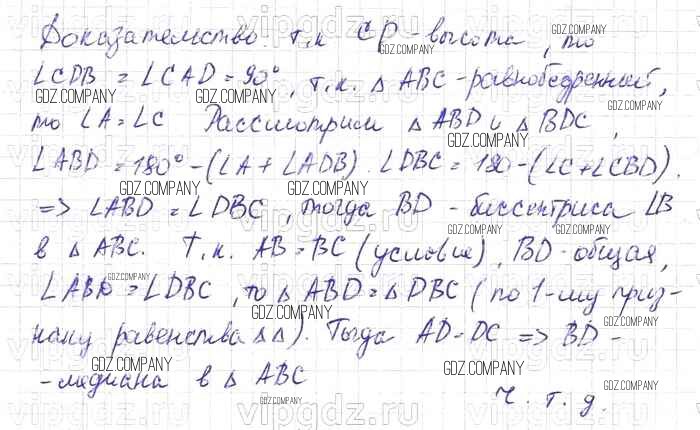 Доказательство: т.к CD - высота, то
∠CDB = ∠CAD = 90°, т.к. △ ABC - равнобедренный,
то ∠A = ∠C Рассмотрим △ ABD и △ BDC,
∠ABD = 180° - (∠A + ∠ADB). ∠DBC = 180 - (∠C + ∠CBD).
=> ∠ABD = ∠DBC, тогда BD - биссектриса ∠B
в △ ABC. Т.к. AB = BC (условие), BD - общая,
∠ABD = ∠DBC, то △ ABD = △ DBC (по 1-му приз-
наку равенства △△). Тогда AD = DC => BD -
- медиана в △ ABC
Ч. т. д.